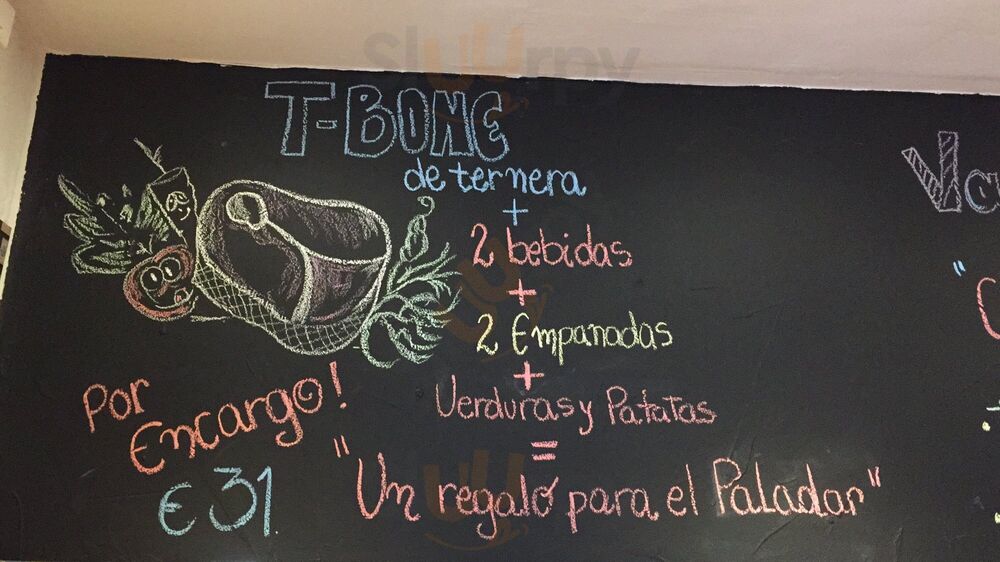 Sluurpy
T-BONE
de ternera
+
2 bebidas
+
2 Empanadas
+
Verduras y Patatas
=
"Un regalo para el Paladar"
Por
Encargo!
€ 31